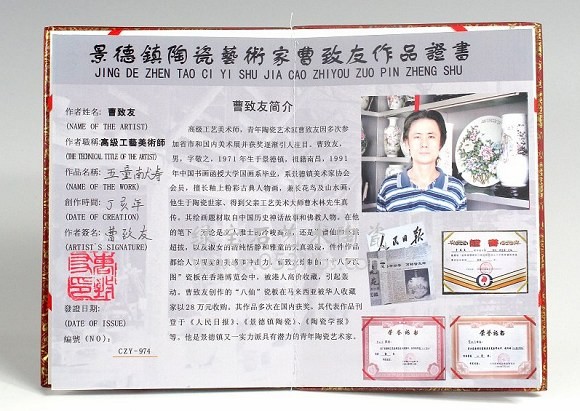 景德鎮陶瓷藝術家曹致友作品證書
JING DE ZHEN TAO CI YI SHU JIA CAO ZHIYOU ZUO PIN ZHENG SHU
作者姓名: 曹致友
(NAME OF THE ARTIST)
作者職稱:高级工藝美術師
(THE TECHNICAL TITLE OF THE ARTIST)
作品名稱: 五童献寿
(NAME OF THE WORK)
創作時間: 丁亥年
(DATE OF CREATION)
作者簽名: 曹致友
(ARTIST'S SIGNATURE)
發證日期:
(DATE OF ISSUE)
編號 (NO):
CZY-974
曹致友简介
高级工艺美术师,青年陶瓷艺术
曹致友因多次参
加省市和国内美术展并获奖逐渐引人注目。曹致友,
男,字敬之,1971年生于景德镇,祖籍南昌,1991年
中国书画函授大学国画系毕业,系景德镇美术家协会
会员,擅长釉上粉彩古典人物画,兼长花鸟及山水画,
他生于陶瓷世家、得到父亲工艺美术大师曹木林先生真
传。其绘画题材取自中国历史神话故事和佛教人物。在他
的笔下
图”瓷板在香港博览会中,被港人高价收藏,引起轰
动。曹致友创作的“八仙”瓷板在马来西亚被华人收藏
家以28万元收购,其作品多次在国内获奖。其代表作品刊
登于《人民日报》、《景德镇陶瓷》、《陶瓷学报》
等。他是景德镇又一实力派具有潜力的青年陶瓷艺术家。
人民日报
證書
荣誉证书
荣誉证书